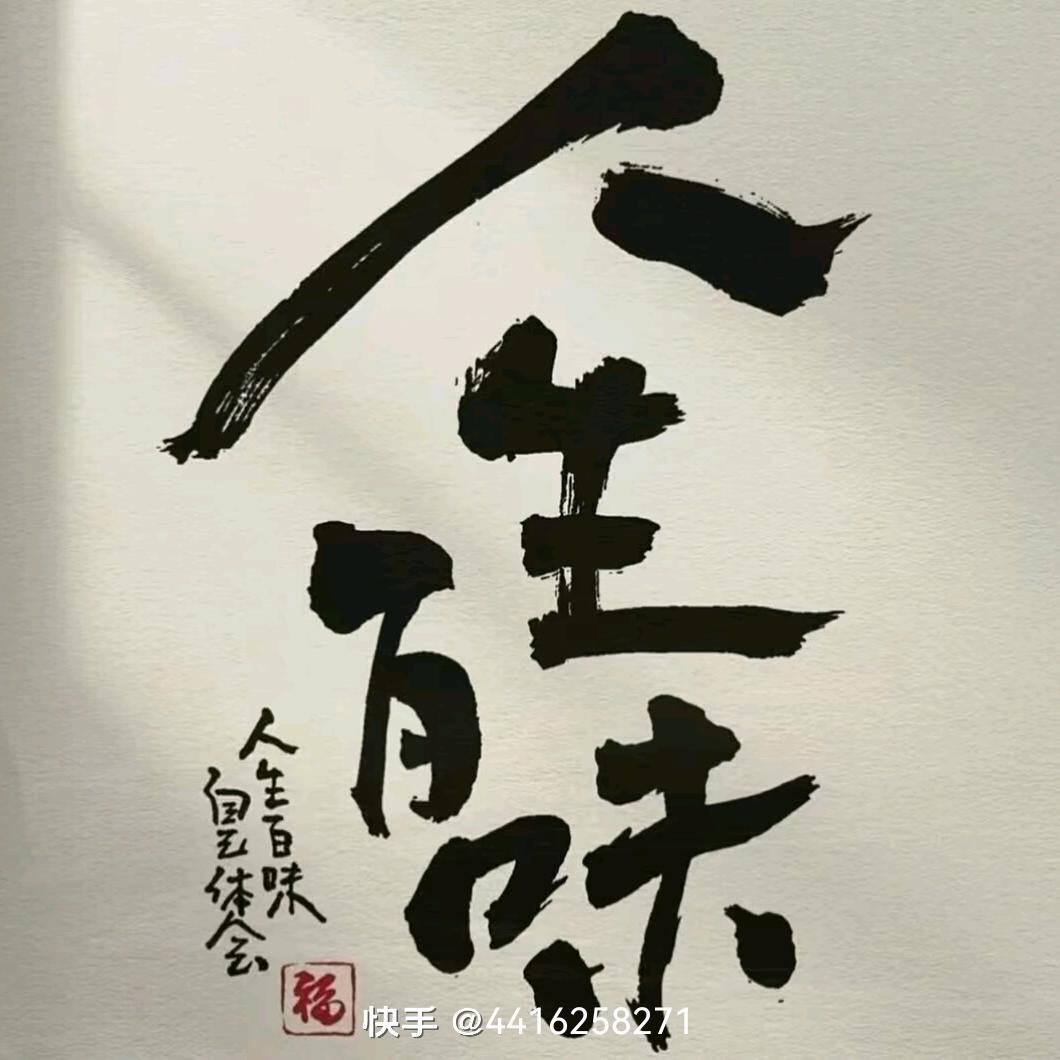 人生百味
人生百味
自己体会
福
快手 @4416258271